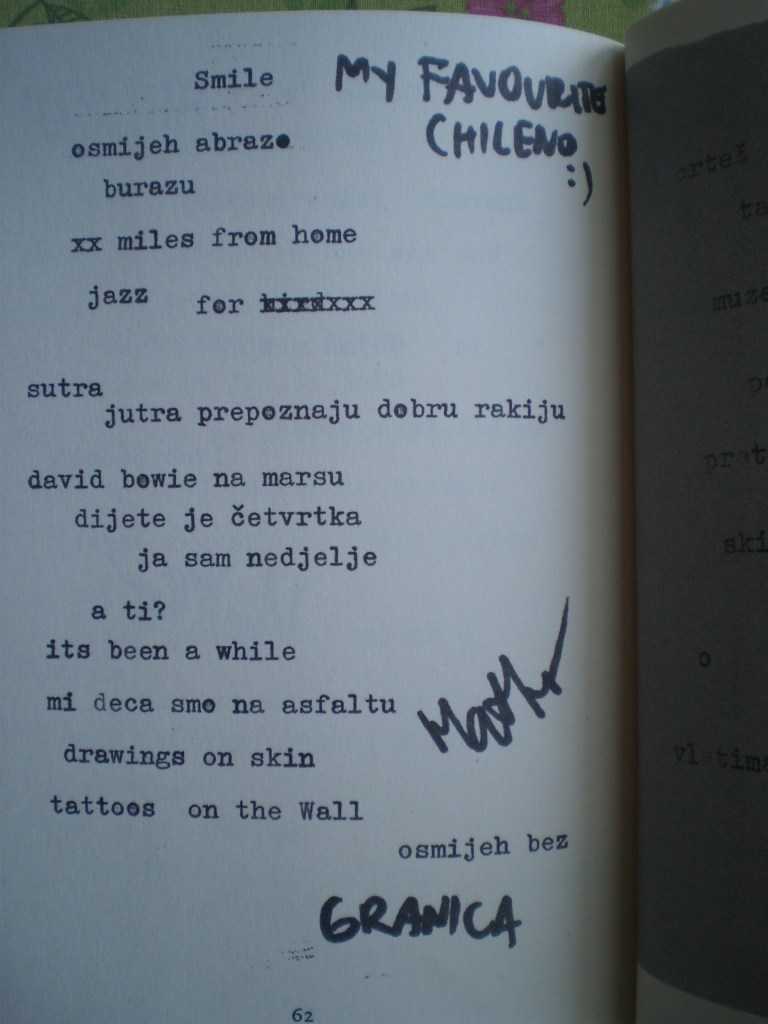 Smile
MY FAVOURITE
CHILENO
:)
osmijeh abrazo
burazu
xx miles from home
jazz for xxx
sutra
jutra prepoznaju dobru rakiju
david bowie na marsu
dijete je četvrtka
ja sam nedjelje
a ti?
its been a while
mi deca smo na asfaltu
drawings on skin
tattoos on the Wall
osmijeh bez
GRANICA
62
crtež
ta
muze
prat
ski
o
vlatima